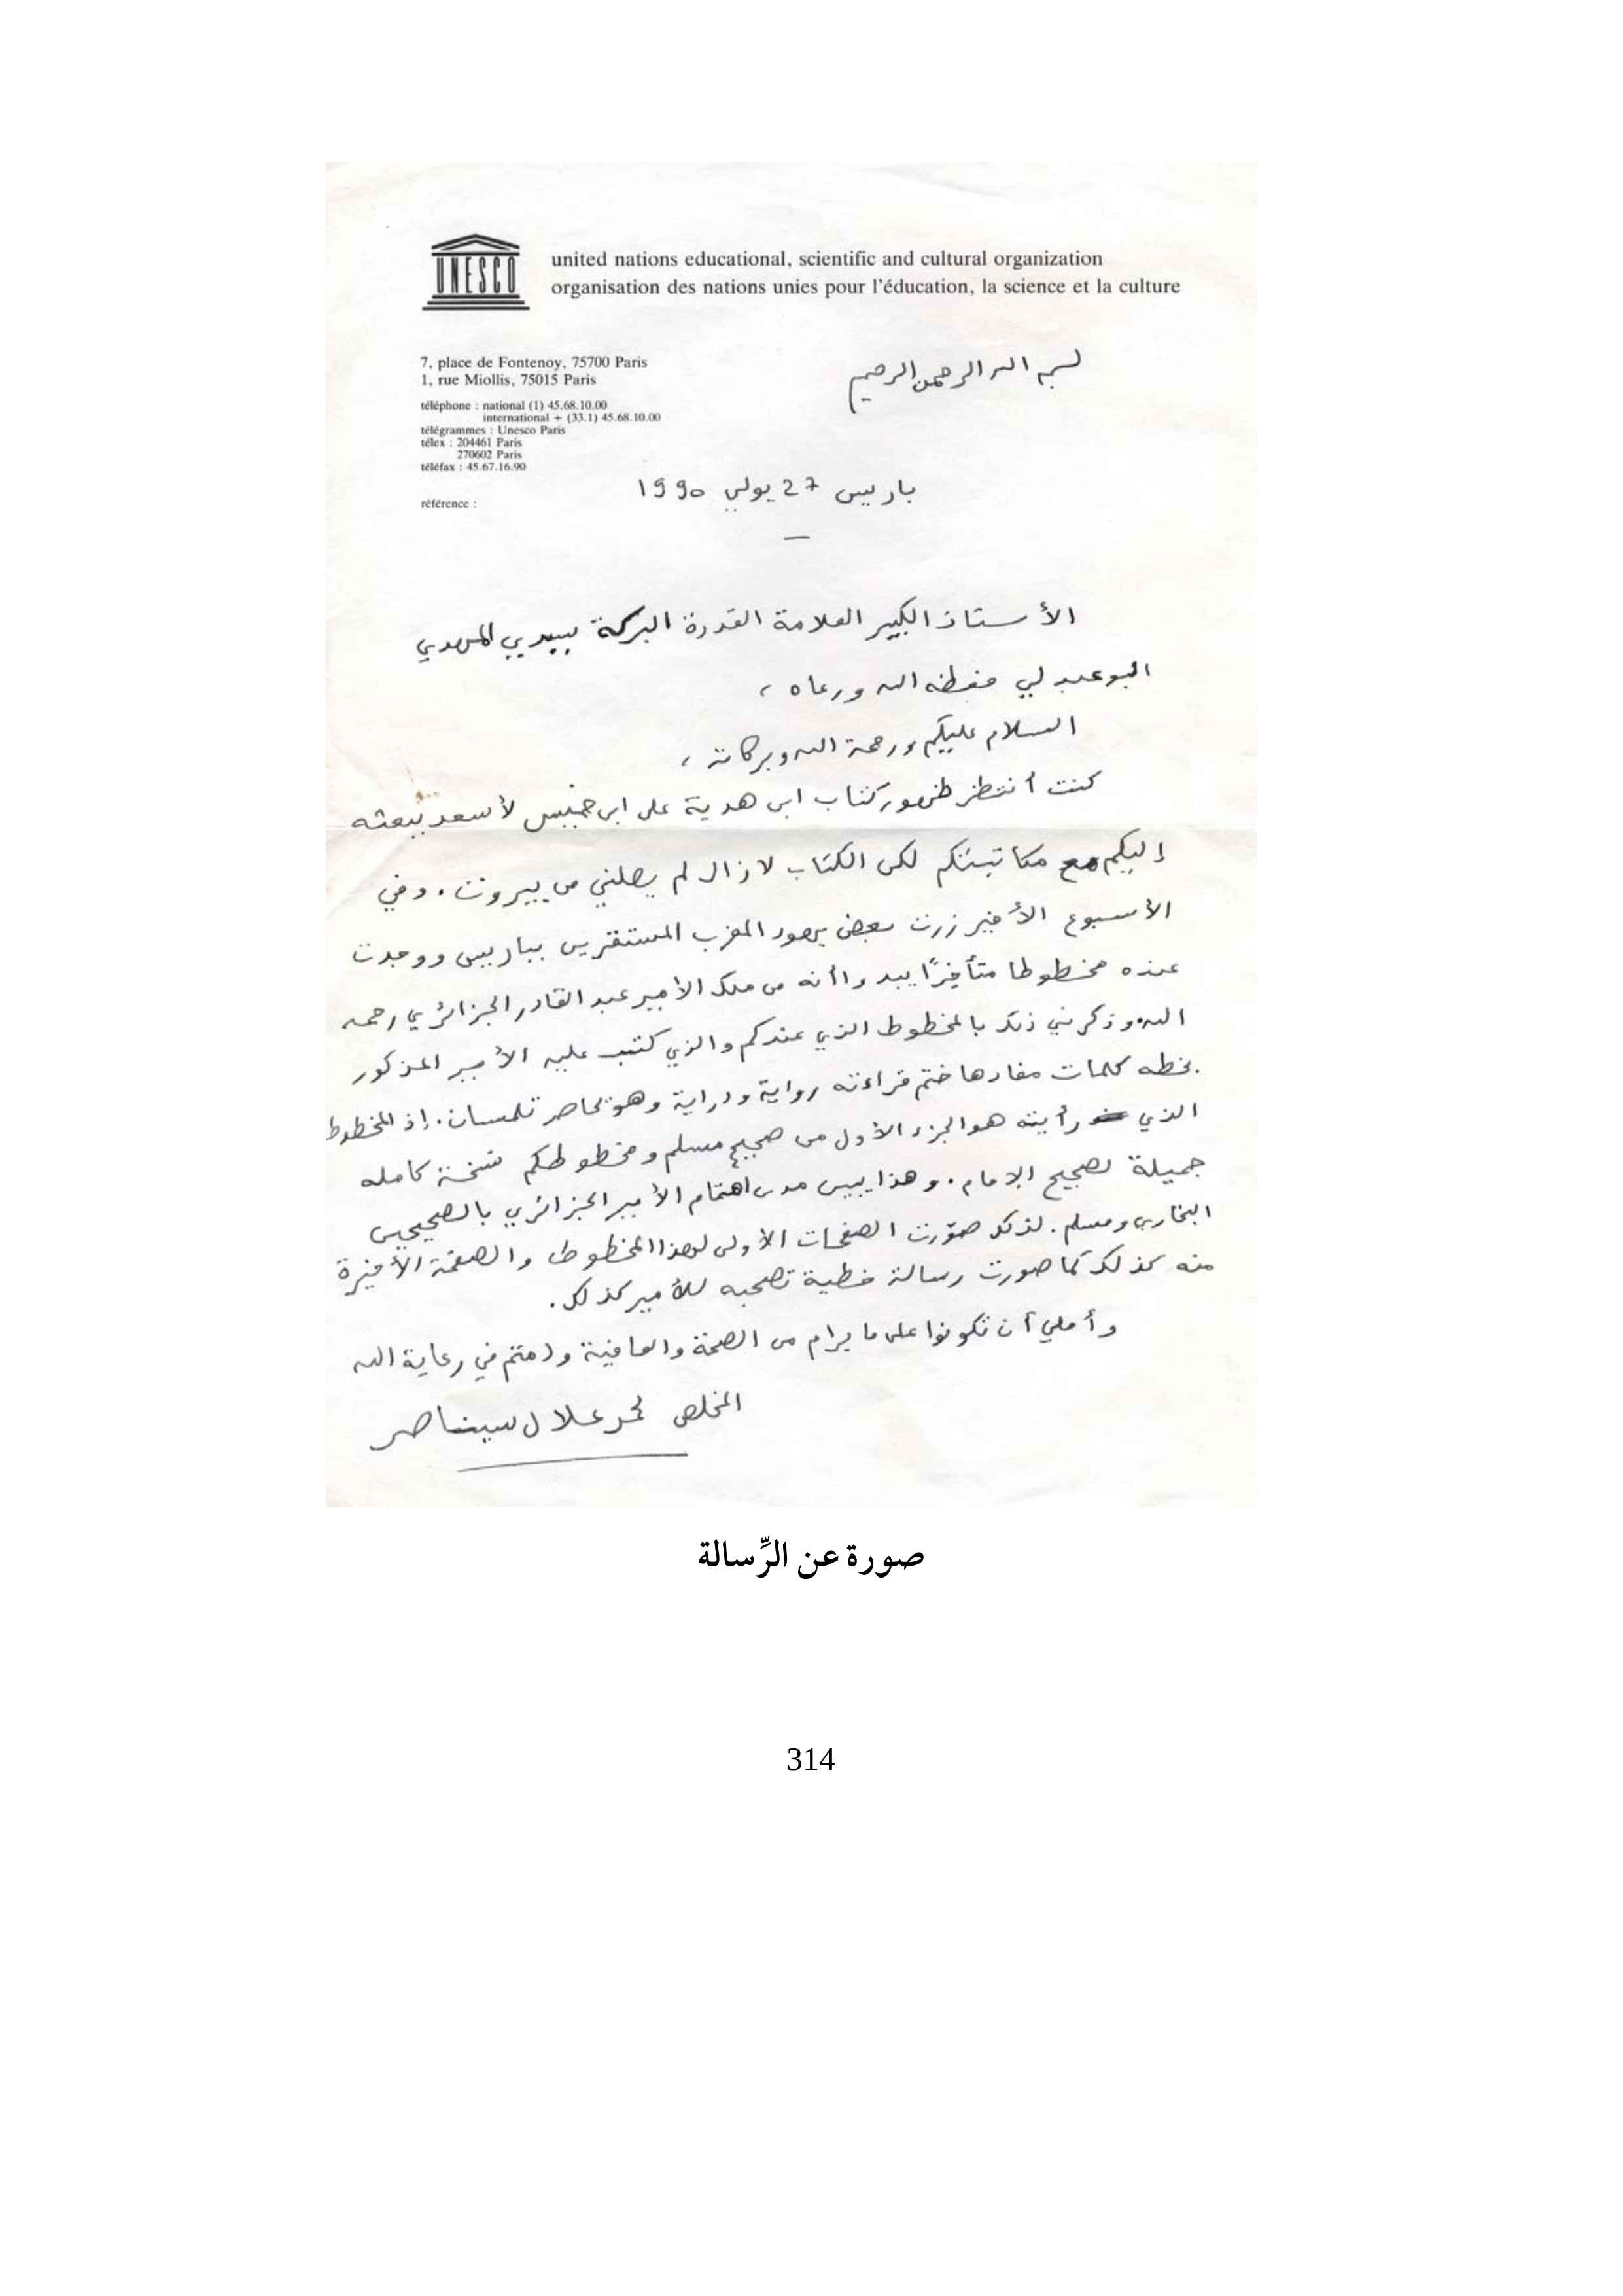 UNESCO
united nations educational, scientific and cultural organization
organisation des nations unies pour l'éducation, la science et la culture
7, place de Fontenoy, 75700 Paris
1, rue Miollis, 75015 Paris
téléphone : national (1) 45.68.10.00
international + (33.1) 45.68.10.00
télégrammes : Unesco Paris
télex : 204461 Paris
270602 Paris
téléfax : 45.67.16.90
référence :
بسم الله الرحمن الرحيم
باريس 27 يولي 1990
الأستاذ الكبير العلامة القدوة البركة سيدي المهدي
البوعبدلي حفظه الله ورعاه ،
السلام عليكم ورحمة الله وبركاته ،
كنت أنتظر ظهور كتاب ابن هدية على ابن خميس لأسعد ببعثه
إليكم مع مكاتبتكم لكن الكتاب لازال لم يصلني من بيروت . وفي
الأسبوع الأخير زرت بعض يهود المغرب المستقرين بباريس ووجدت
عنده مخطوطا متأخرًا يبدوا أنه من ملك الأمير عبد القادر الجزائري رحمه
الله وذكرني ذلك بالمخطوط الذي عندكم والذي كتب عليه الأمير المذكور
بخطه كلمات مفادها ختم قراءته رواية ودراية وهو محاصر تلمسان . إذ المخطوط
الذي رأيته هو الجزء الأول من صحيح مسلم ومخطوطكم نسخة كامله
جميلة لصحيح الإمام . وهذا يبين مدى اهتمام الأمير الجزائري بالصحيحين
البخاري ومسلم . لذلك صوّرت الصفحات الأولى لهذا المخطوط والصفحة الأخيرة
منه كذلك كما صورت رسالة خطية تصحبه للأمير كذلك .
وأملي أن تكونوا على ما يرام من الصحة والعافية ودمتم في رعاية الله
المخلص محمد علال سيناصر
صورة عن الرِّسالة
314